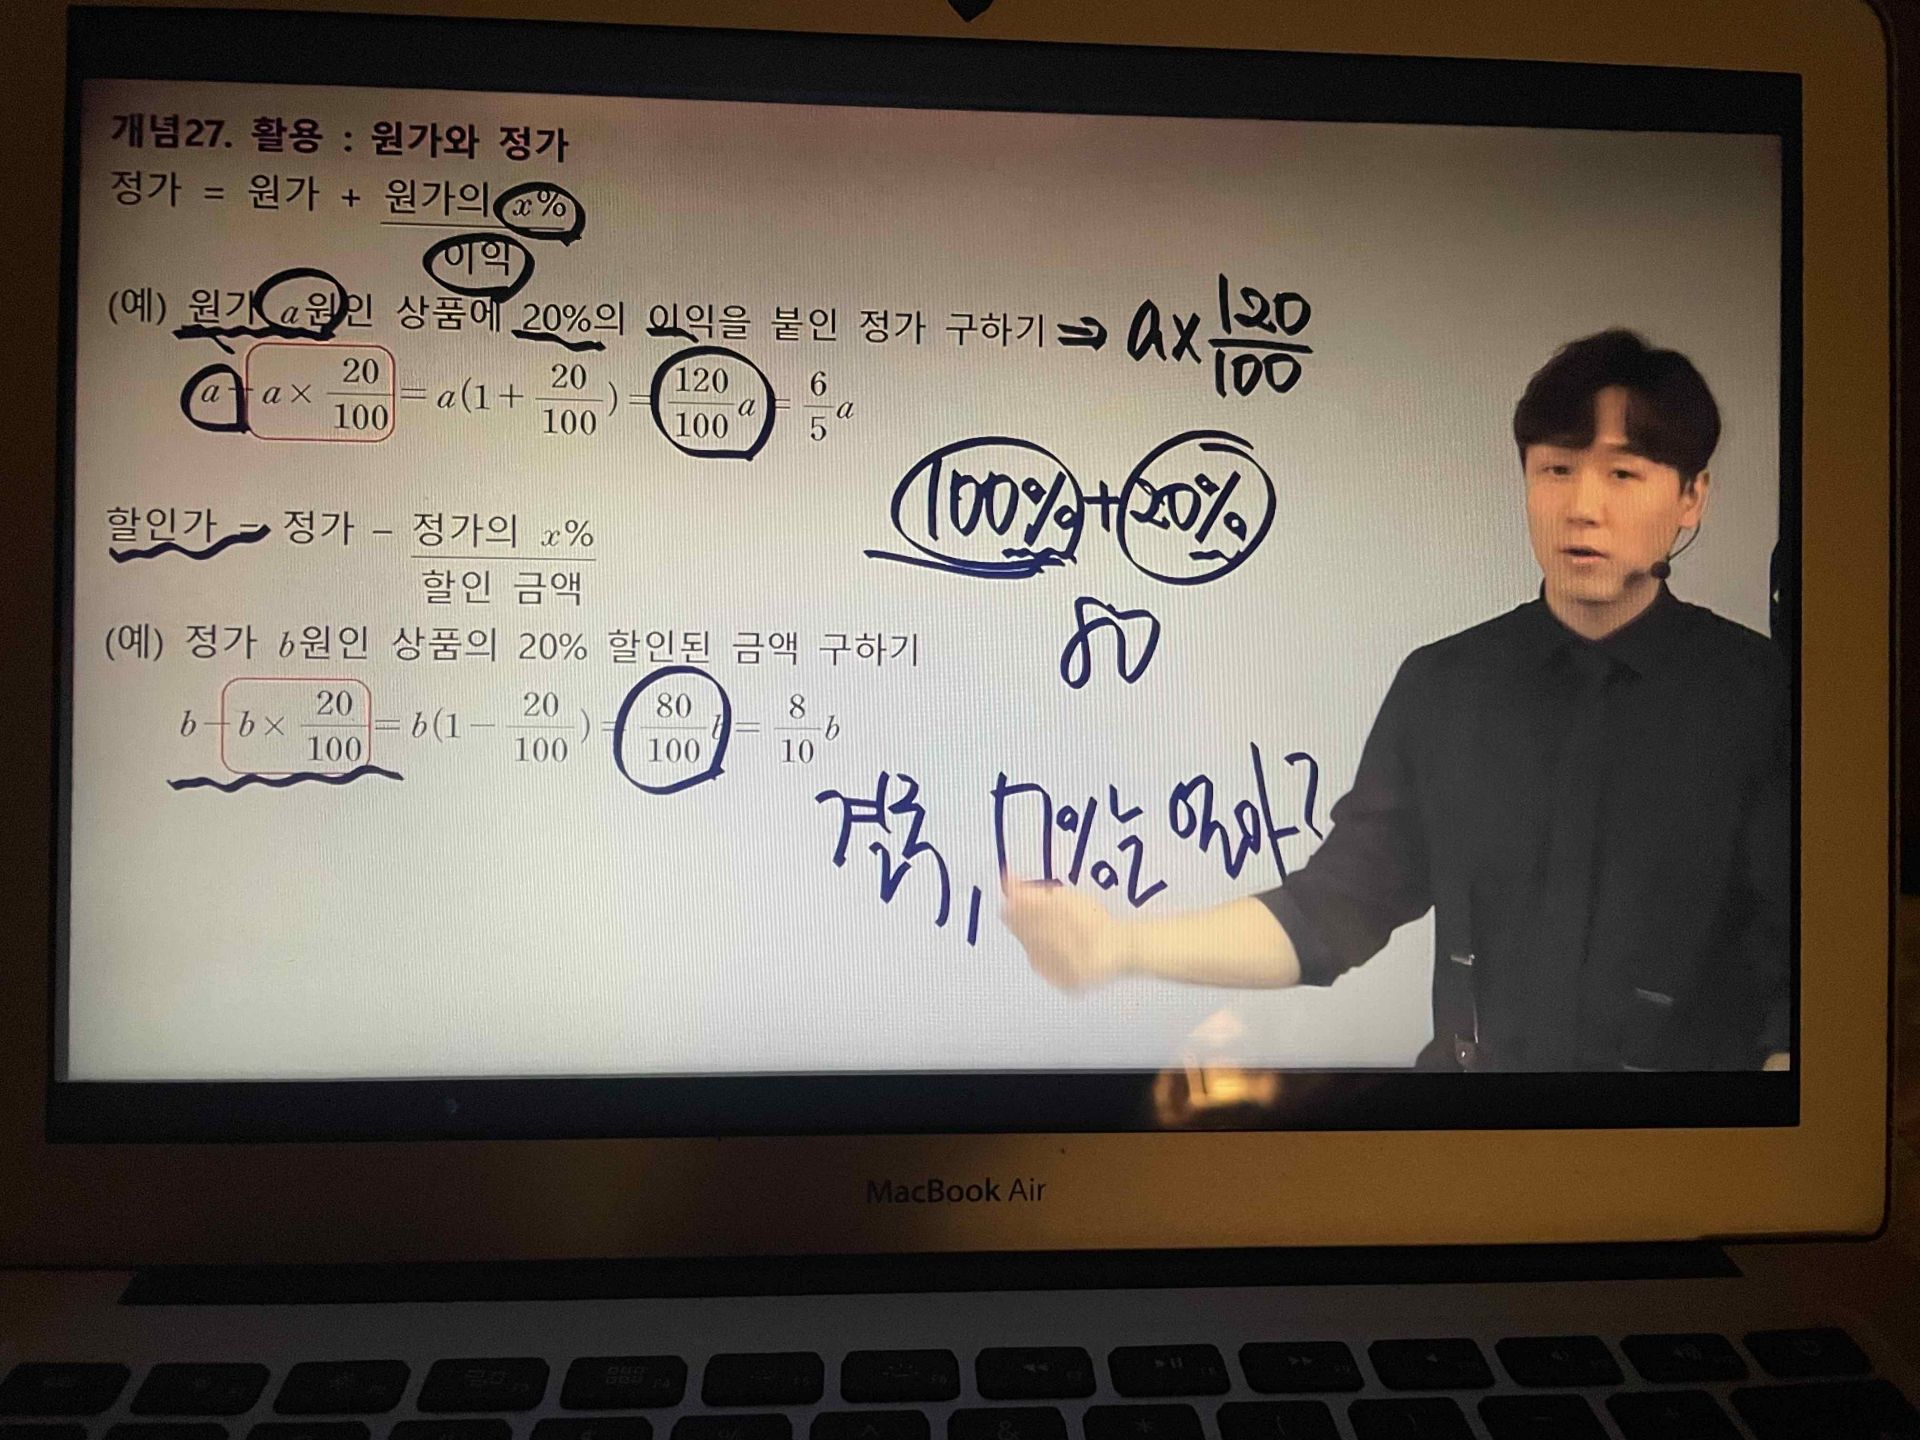 개념27. 활용 : 원가와 정가
정가 = 원가 + 원가의 x%
이익
(예) 원가 a원인 상품에 20%의 이익을 붙인 정가 구하기 ⇒ a× 120/100
a + a × 20/100 = a(1 + 20/100) = 120/100 a = 6/5 a
100% + 20%
할인가 = 정가 - 정가의 x%
할인 금액
80
(예) 정가 b원인 상품의 20% 할인된 금액 구하기
b - b × 20/100 = b(1 - 20/100) = 80/100 b = 8/10 b
결국, □%는 얼마?
MacBook Air